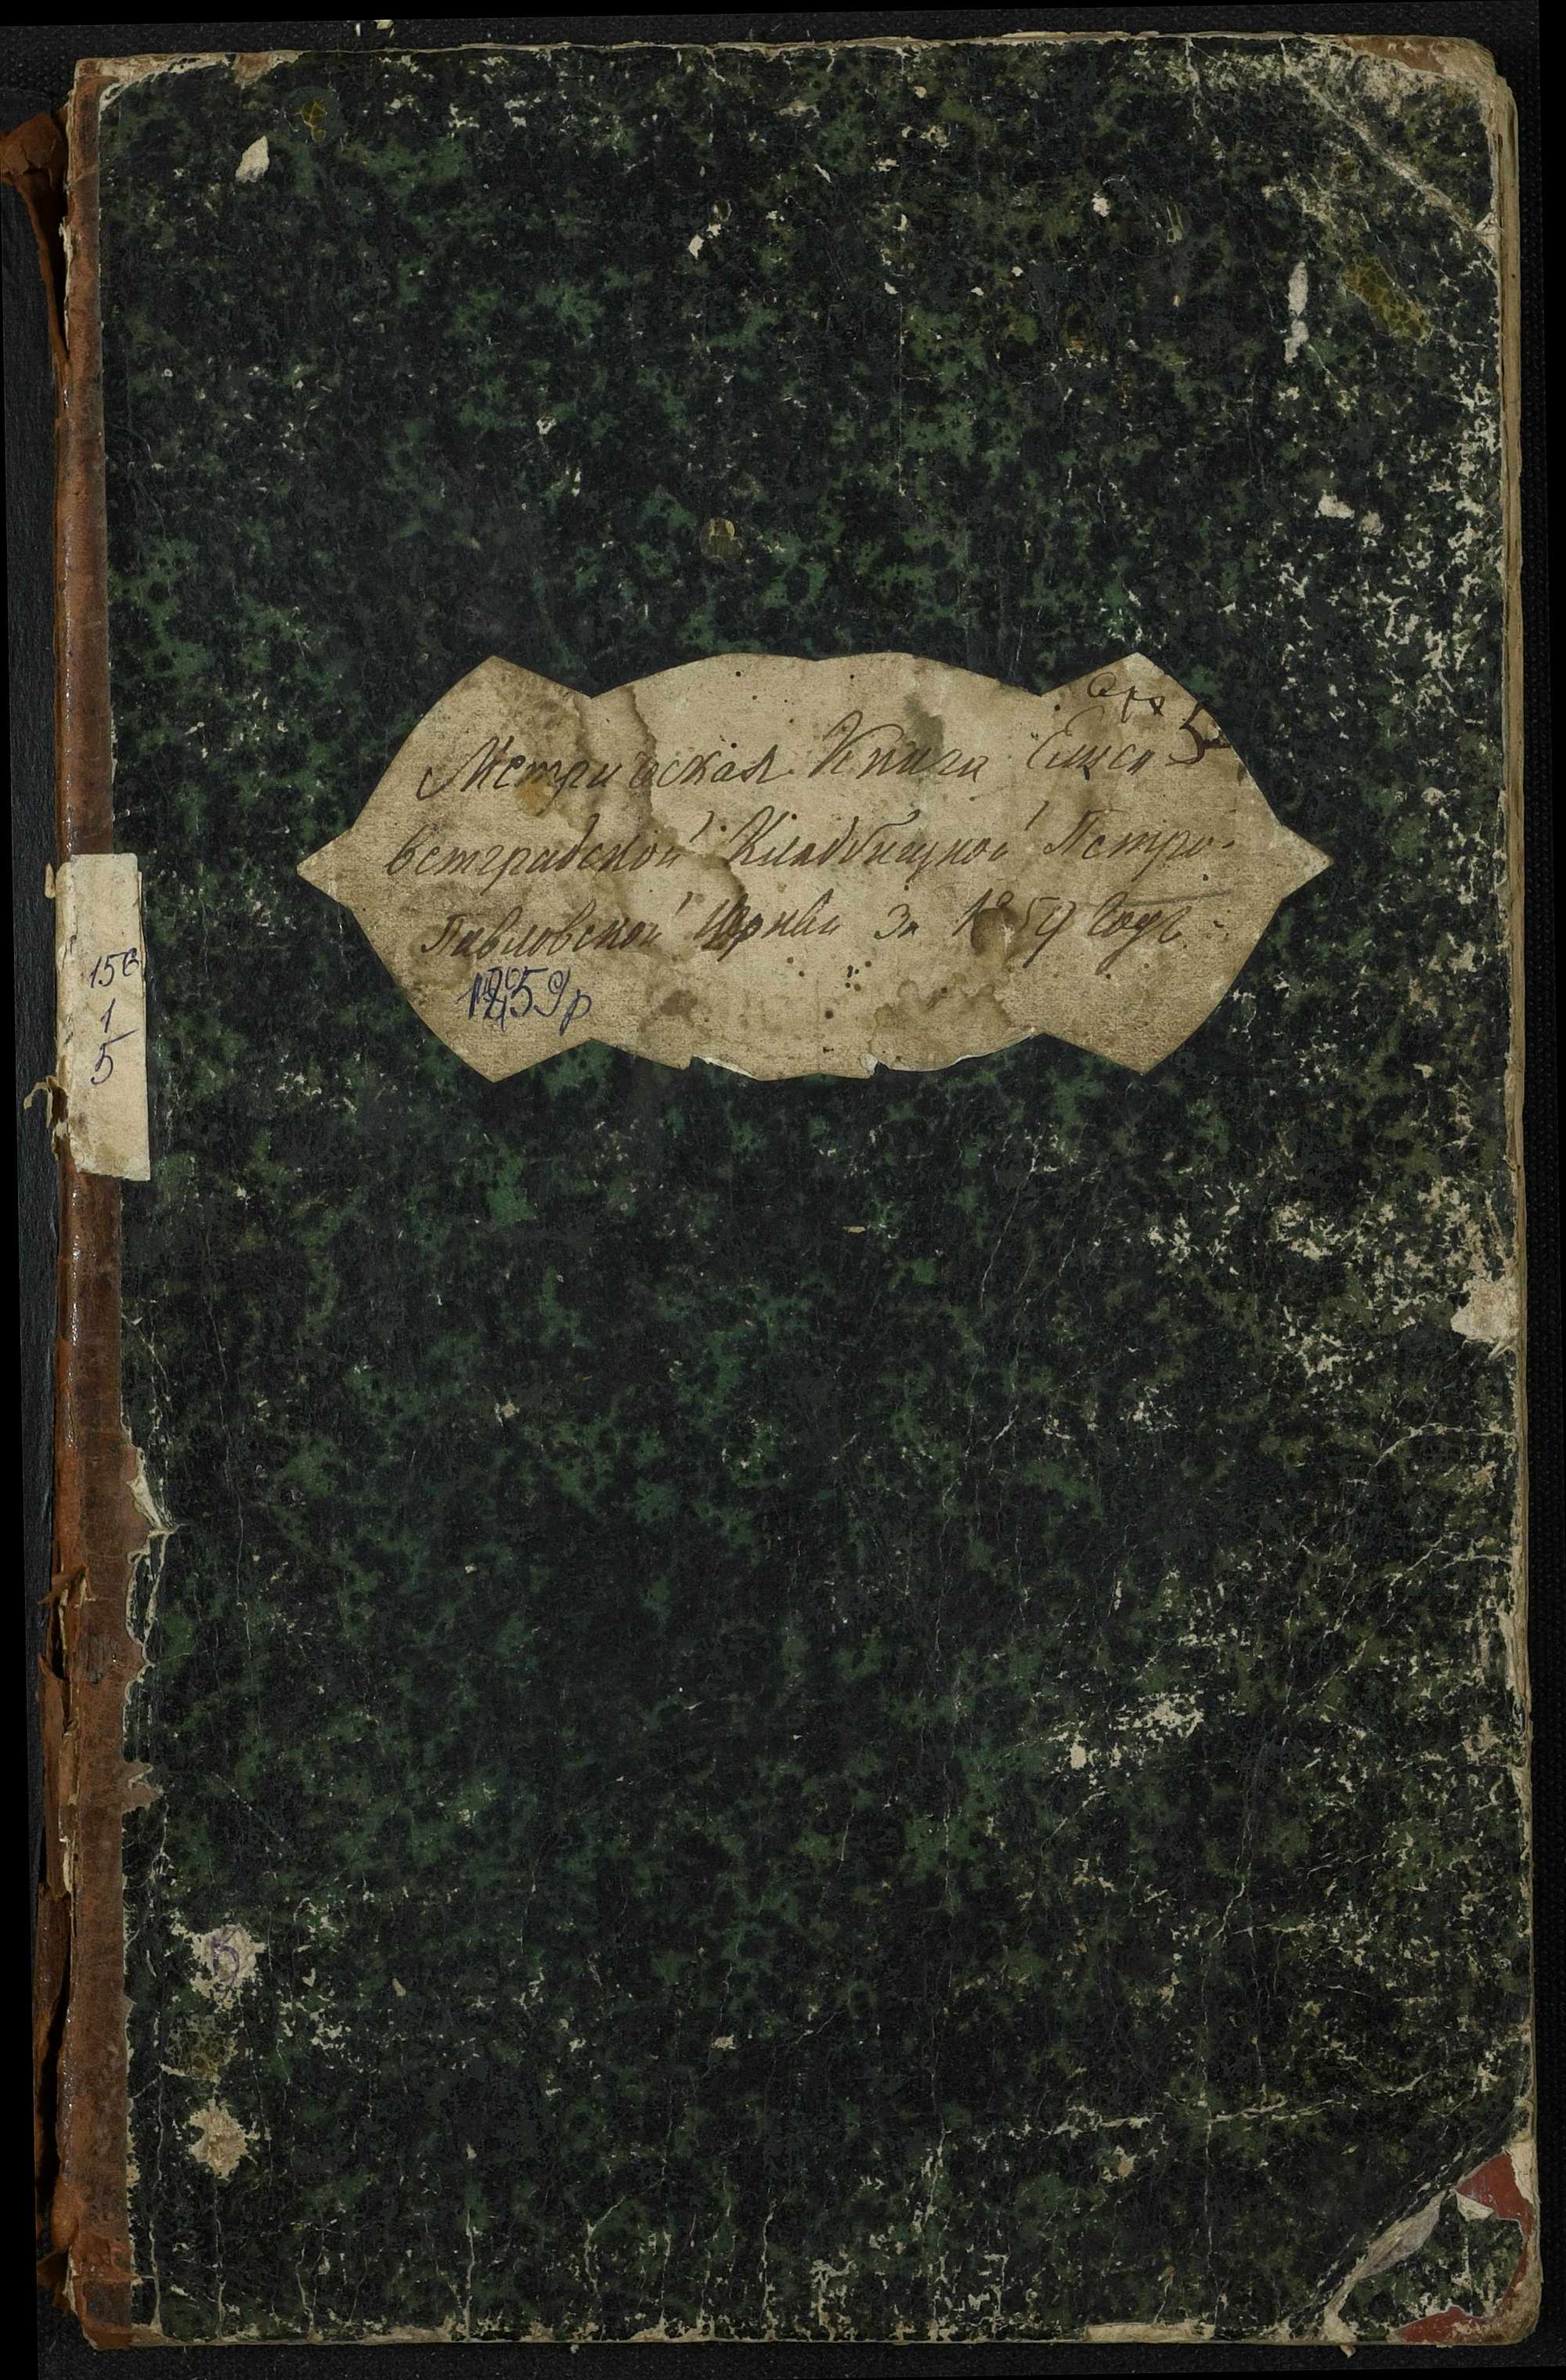 Арх 5
Метрическая Книга Елиса
ветградской Кладбищной Петро-
Павловской Церкви за 1859 годъ.
1859р
156
1
5
5